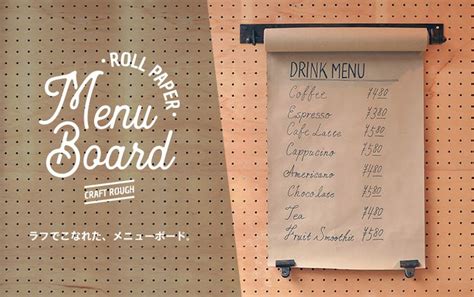 ROLL PAPER
Menu
Board
CRAFT ROUGH
ラフでこなれた、メニューボード。
DRINK MENU
Coffee ¥480
Espresso ¥380
Cafe Latte ¥580
Cappucino ¥580
Americano ¥480
Chocolate ¥580
Tea ¥480
Fruit Smoothie ¥580